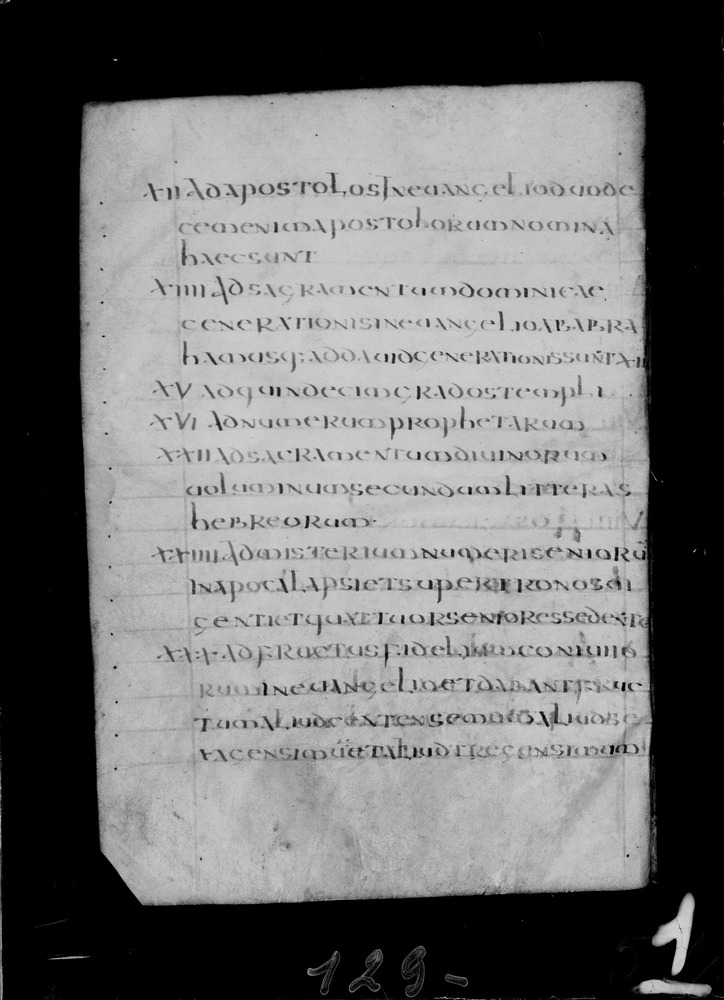 XII Ad apostolos In euangelio duode
cem enim apostolorum nomina
haec sunt
XIIII Ad sacramentum dominicae
generationis in euangelio ab abra
ham usq; ad dauid generationis sunt XIIII
XV Ad quindecim grados templi
XVI Ad numerum prophetarum
XXII Ad sacramentum diuinorum
uoluminum secundum litteras
hebreorum
XXIIII Ad misterium numeri seniorū
in apocalapsi et super tronos ui
genti et quattuor seniores sedente
XXX Ad fructus fidelium coniugo
rum in euangelio et dabant fruc
tum aliud centensemum aliud se
xagensimū et aliud trecensimum
129-
1